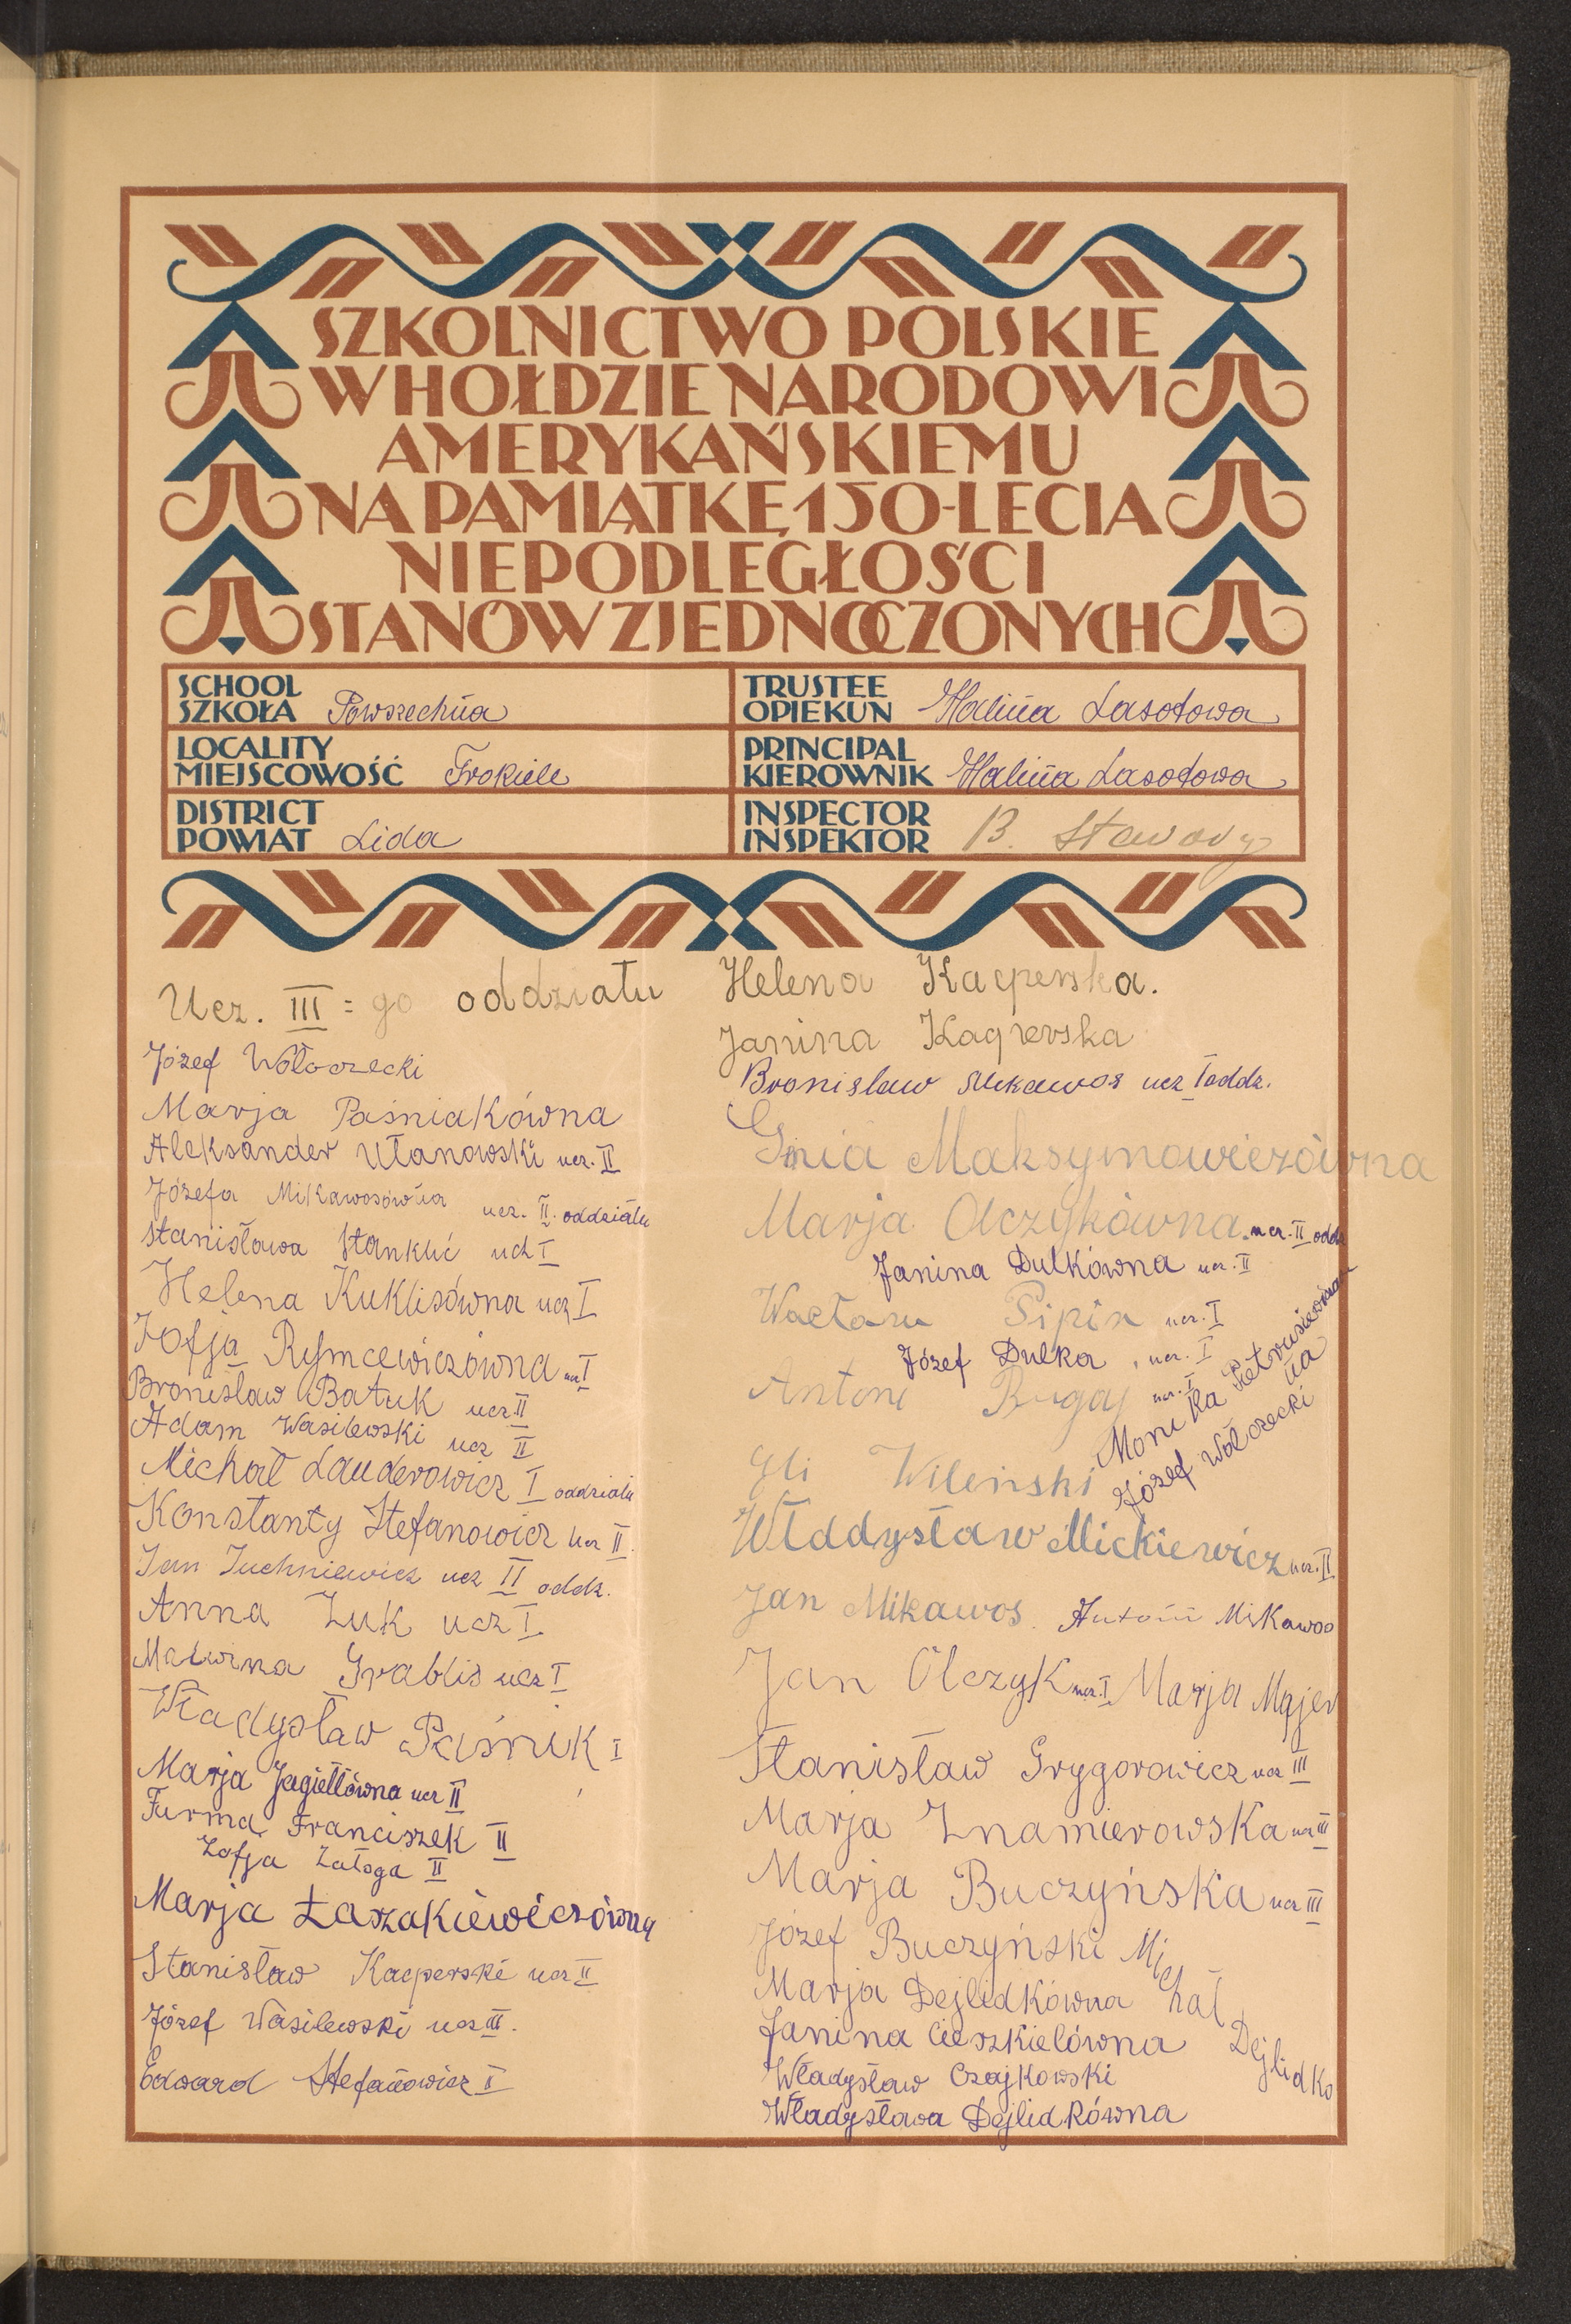 SZKOLNICTWO POLSKIE
W HOŁDZIE NARODOWI
AMERYKAŃSKIEMU
NA PAMIĄTKĘ 150-LECIA
NIEPODLEGŁOŚCI
STANÓW ZJEDNOCZONYCH
SCHOOL
SZKOŁA Powszechna
LOCALITY
MIEJSCOWOŚĆ Trokiele
DISTRICT
POWIAT Lida
TRUSTEE
OPIEKUN Halina Lasotowa
PRINCIPAL
KIEROWNIK Halina Lasotowa
INSPECTOR
INSPEKTOR B.
Ucz. III = go oddziału
Józef Wołoczecki
Marja Paśniakówna
Aleksander Ułanowski ucz. II
Józefa Mikawosówna ucz. II. oddziału
Stanisława ucz I
Helena Kuklisówna ucz I
Zofja Rymcewiczówna ucz I
Bronisław Batuk ucz II
Adam Wasilewski ucz II
Michał Lauderowicz I oddziału
Konstanty Stefanowicz ucz II.
Jan Juchniewicz ucz II oddz.
Anna Żuk ucz I.
Malwina Grablis ucz I
Władysław Paśnik I
Marja Jagiełłówna ucz II
Furma Franciszek II
Zofja Załoga II
Marja Łaszakiewiczówna
Stanisław Kacperski ucz II
Józef Wasilewski ucz III.
Edward Stefanowicz II
Helena Kacperska.
Janina Kacperska
Bronisław Mikawos ucz I oddz.
Maksymowiczówna
Marja Olczykówna ucz. II oddz
Janina Dulkówna ucz. II
Wacław Pipin ucz. I
Józef Dulka, ucz. I
Antoni Bugaj ucz. I
Monika Pietrusiewiczówna
Józef Wołczecki
Eli Wileński
Władysław Mickiewicz ucz. II.
Jan Mikawos. Antoni Mikawos
Jan Olczyk ucz. I. Marja Majer
Stanisław Grygorowicz ucz III
Marja Znamierowska ucz III
Marja Buczyńska ucz III
Józef Buczyński
Michał Dejlidko
Marja Dejlidkówna
Janina Cieszkielówna
Władysław Czajkowski
Władysława Dejlidkówna